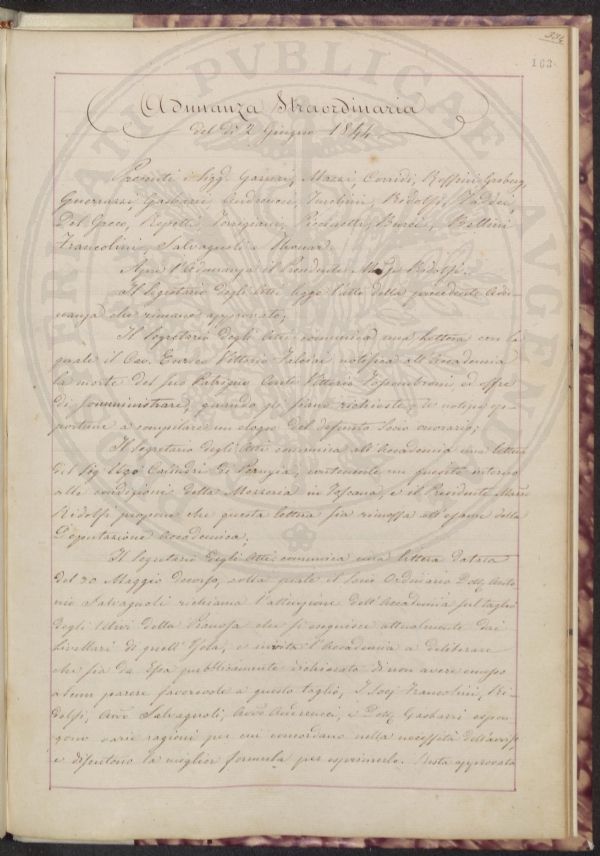 103
Adunanza Straordinaria
del dì 2 Giugno 1844
Presenti i Sigg.
Guerrazzi, Ridolfi, Taddei,
Del Greco, Repetti, Bettini
Francolini, Salvagnoli e Thouar.
Apre l'Adunanza il Presidente M. Ridolfi.
Il Segretario degli Atti legge l'atto della precedente Adu-
nanza che rimane approvato;
Il Segretario degli Atti comunica una Lettera con la
quale il Cav. Enrico Vittorio Falciai notifica all'Accademia
la morte del suo Patrigno Conte Vittorio Fossombroni ed offre
di somministrare, quando gli siano richieste, le notizie op-
portune a compilare un elogio del defunto Socio onorario;
Il Segretario degli Atti comunica all'Accademia una lettera
del Sig. di Perugia, contenente un quesito intorno
alle condizioni della Mezzeria in Toscana, e il Presidente March.
Ridolfi propone che questa lettera sia rimessa all'esame della
Deputazione Accademica;
Il Segretario degli Atti comunica una lettera datata
del 30 Maggio decorso, colla quale il Socio Ordinario Dott. Anto-
nio Salvagnoli richiama l'attenzione dell'Accademia sul taglio
degli Ulivi della Pianosa che si eseguisce attualmente dai
livellari di quell'Isola, e invita l'Accademia a deliberare
che sia da Essa pubblicamente dichiarato di non avere emesso
alcun parere favorevole a questo taglio, I Socj Francolini, Ri-
dolfi, Avv. Salvagnoli, Avv. Andreucci, e Dott. Gasbarri espon-
gono varie ragioni per cui concordano nella necessità dell'avviso,
e discutono la miglior formula per esprimerlo. Resta approvata